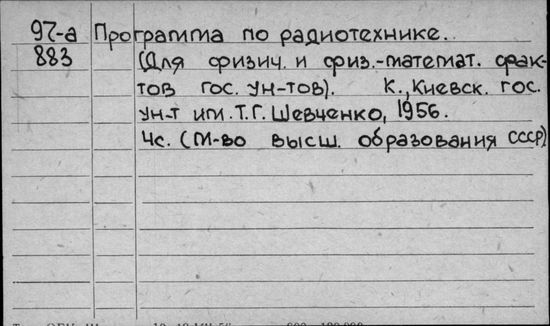 97-а Программа по радиотехнике.
883 (Для физич. и физ.-математ. фак-
тов гос. ун-тов). К., Киевск. гос.
ун-т им. Т.Г. Шевченко, 1956.
4с. (М-во высш. образования СССР)